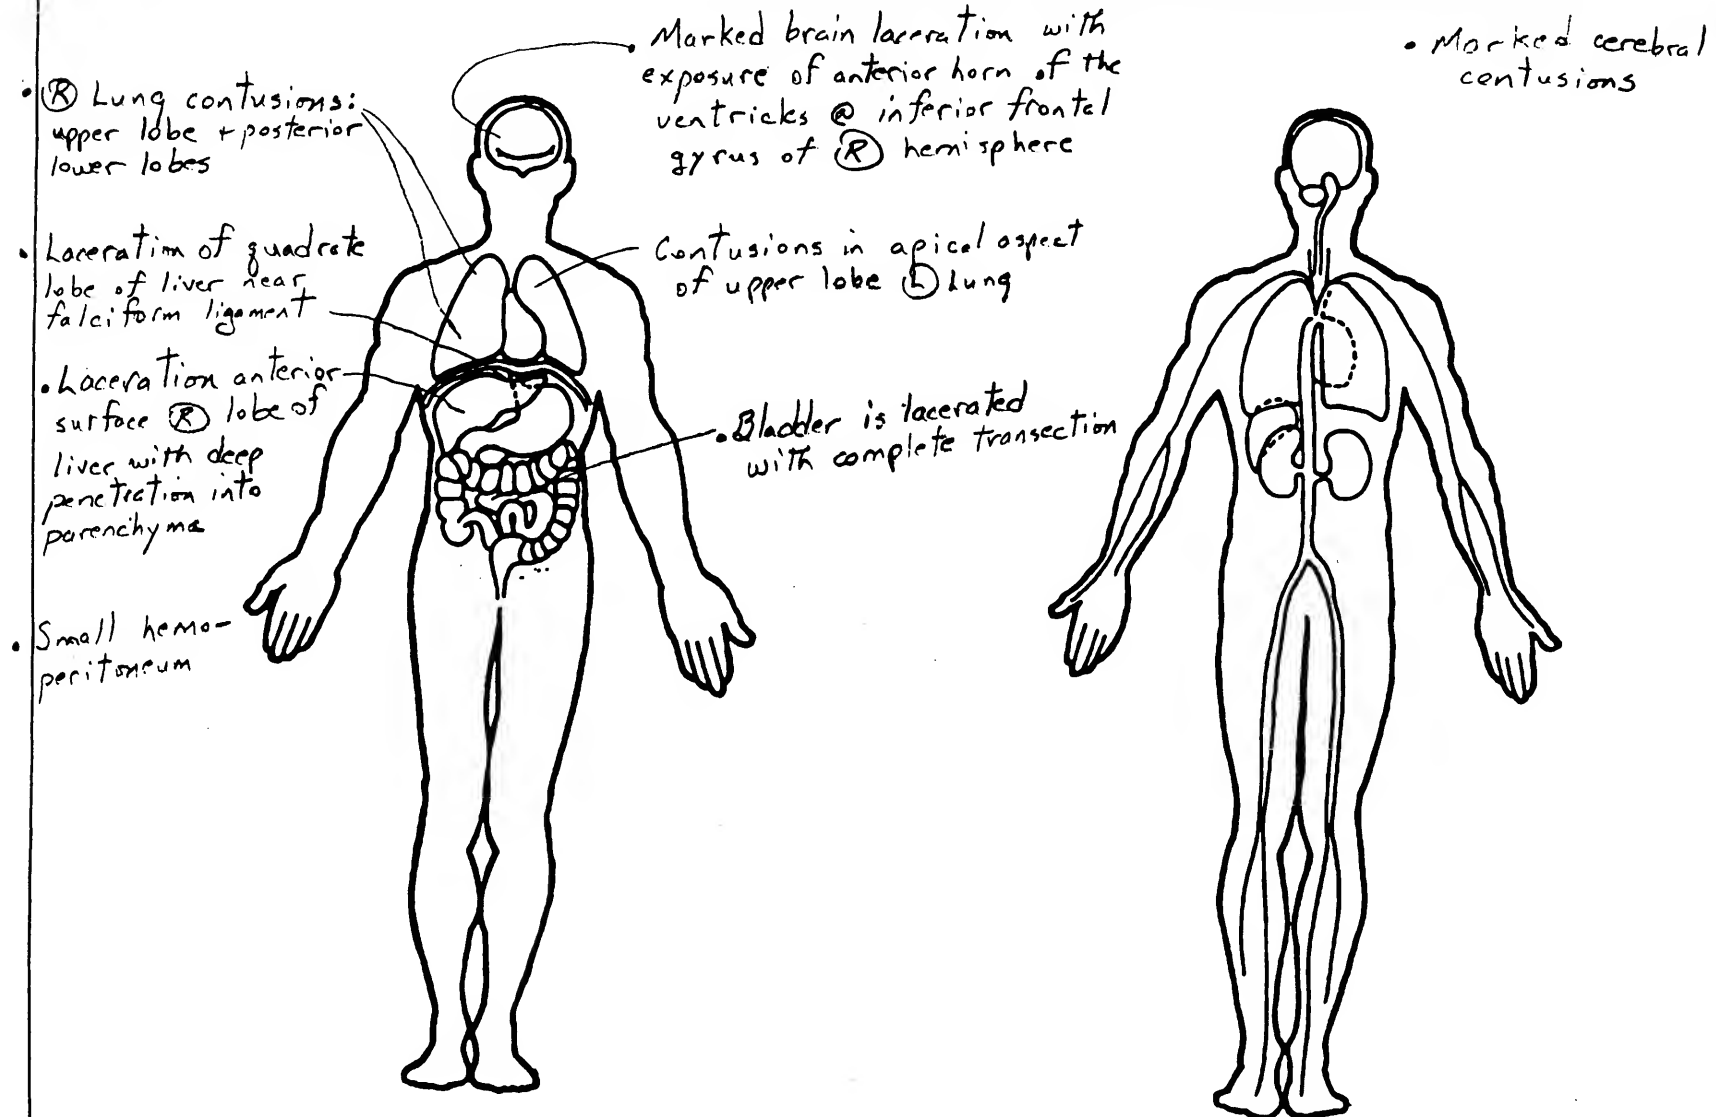 • Ⓡ Lung contusions:
upper lobe + posterior
lower lobes
• Laceration of quadrate
lobe of liver near
falciform ligament
• Laceration anterior
surface Ⓡ lobe of
liver with deep
penetration into
parenchyma
• Small hemo-
peritoneum
• Marked brain laceration with
exposure of anterior horn of the
ventricks @ inferior frontal
gyrus of Ⓡ hemisphere
Contusions in apical aspect
of upper lobe Ⓛ Lung
• Bladder is lacerated
with complete transection
• Marked cerebral
contusions